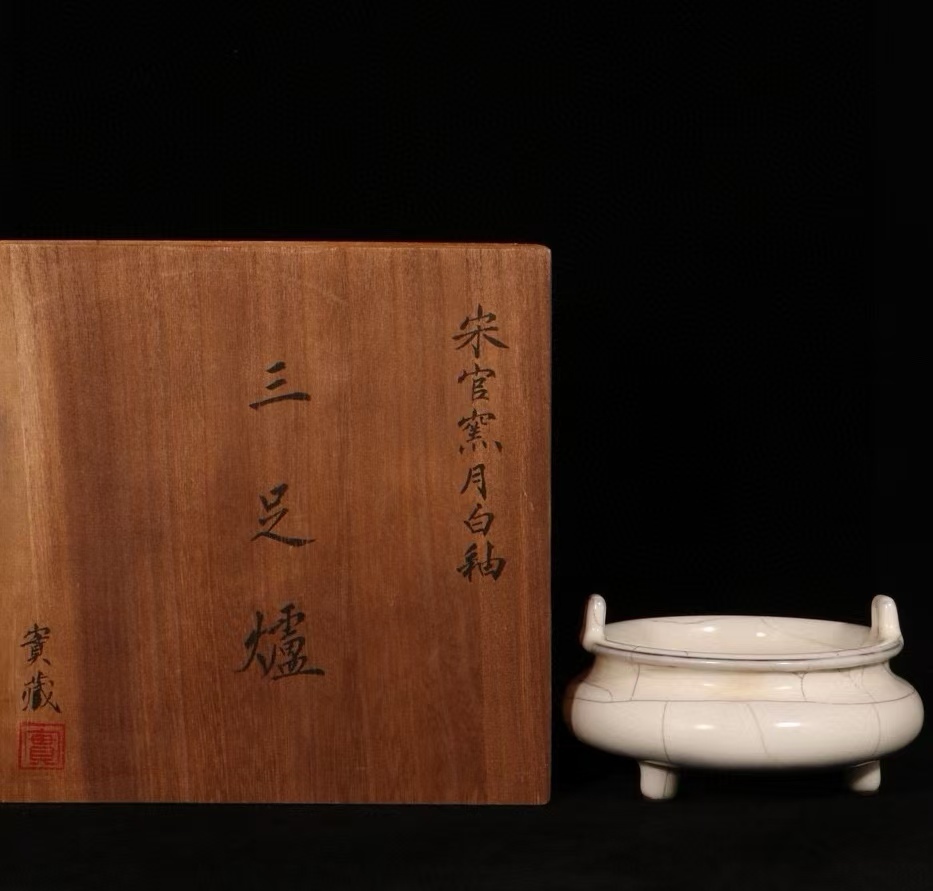 宋官窯月白釉
三足爐
實藏
實